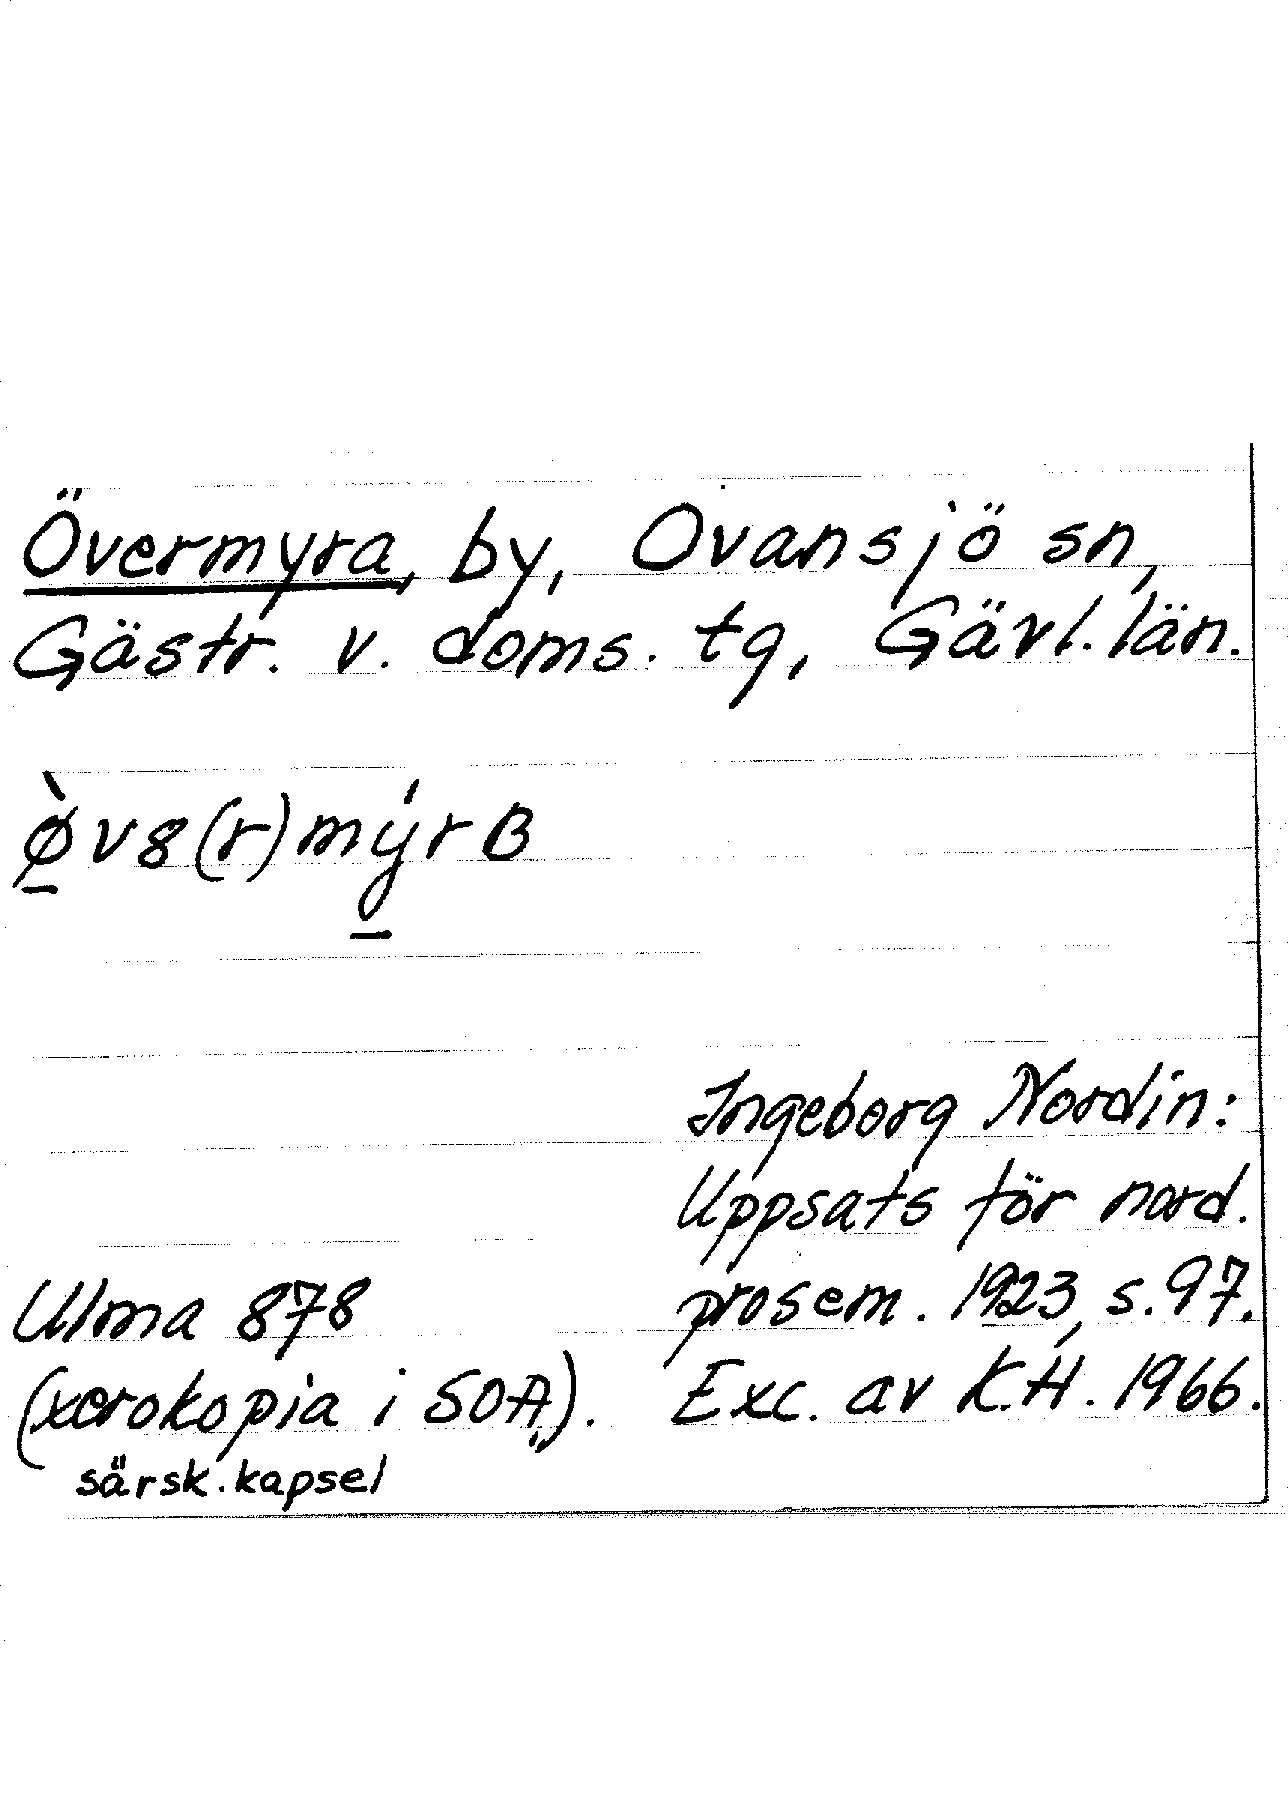 Övermyra, by, Ovansjö sn,
Gästr. v. doms. tg, Gävl. län.
ø̱̀v8(r)mý̱rB
Ingeborg Nordin:
Uppsats för nord.
prosem. 1923, s. 97.
Exc. av K.H. 1966.
Ulma 878
(xerokopia i SOA).
särsk. kapsel